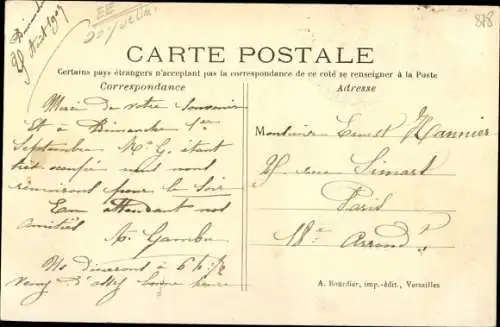 Dimanche
25 Août 1907
EE
878
CARTE POSTALE
Certains pays étrangers n'acceptant pas la correspondance de ce coté se renseigner à la Poste
Correspondance
Adresse
Merci de votre souvenir
Et à Dimanche 1er
Septembre Mr G. étant
très occupé nous nous
réunirons pour le soir
En attendant nos
amitiés
A. Gambu
Ns dîneront à 6 h 1/2
Venez d'assez bonne heure
Monsieur Ernest Hannier
25 rue Simart
Paris
18e Arrondt
A. Bourdier, imp.-édit., Versailles